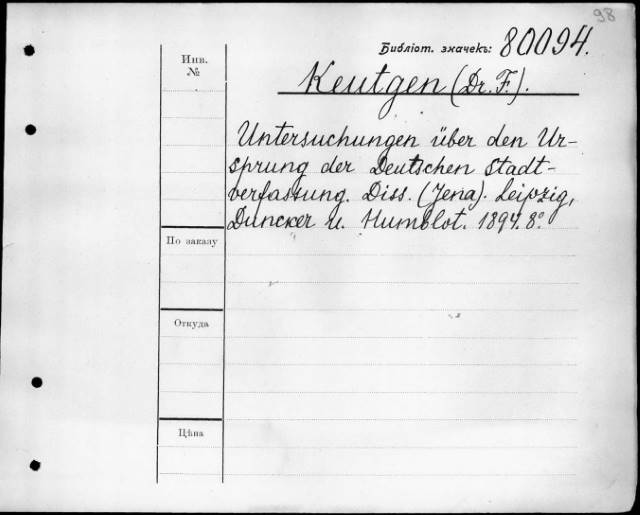 98
Библіот. значекъ: 80094.
Инв.
№
Keutgen (Dr. F.).
Untersuchungen über den Ur-
sprung der Deutschen Stadt-
verfassung. Diss. (Jena). Leipzig,
Duncker u. Humblot. 1894. 8º.
По заказу
Откуда
Цѣна